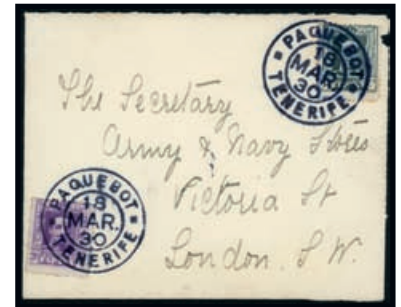 PAQUEBOT
18
MAR.
30
TENERIFE
The Secretary
Army & Navy Stores
Victoria St
London. S.W.
PAQUEBOT
18
MAR.
30
TENERIFE